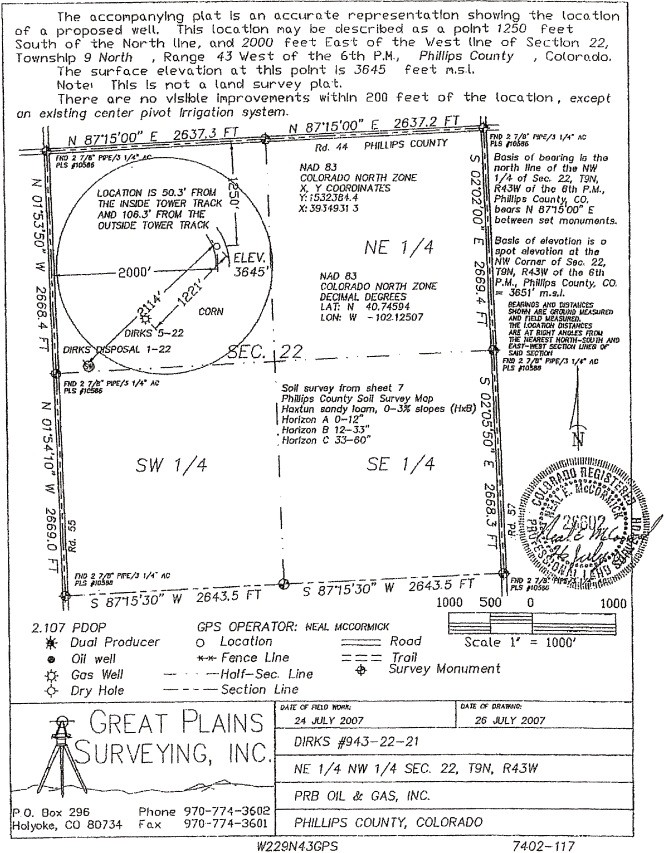 The accompanying plat is an accurate representation showing the location
of a proposed well. This location may be described as a point 1250 feet
South of the North line, and 2000 feet East of the West line of Section 22,
Township 9 North , Range 43 West of the 6th P.M., Phillips County , Colorado.
The surface elevation at this point is 3645 feet m.s.l.
Note: This is not a land survey plat.
There are no visible improvements within 200 feet of the location, except
an existing center pivot irrigation system.
N 87°15'00" E 2637.3 FT
N 87°15'00" E 2637.2 FT
FND 2 7/8" PIPE/3 1/4" AC
PLS #10586
Rd. 44 PHILLIPS COUNTY
FND 2 7/8" PIPE/3 1/4" AC
PLS #10586
LOCATION IS 50.3' FROM
THE INSIDE TOWER TRACK
AND 106.3' FROM THE
OUTSIDE TOWER TRACK
1250'
NAD 83
COLORADO NORTH ZONE
X, Y COORDINATES
Y: 1532384.4
X: 3934931.3
Basis of bearing is the
north line of the NW
1/4 of Sec. 22, T9N,
R43W of the 6th P.M.,
Phillips County, CO.
bears N 87°15'00" E
between set monuments.
N 01°53'50" W 2668.4 FT
S 02°02'00" E 2669.4 FT
NE 1/4
ELEV.
3645'
2000'
2114'
1221'
CORN
DIRKS 5-22
DIRKS DISPOSAL 1-22
NAD 83
COLORADO NORTH ZONE
DECIMAL DEGREES
LAT: N 40.74594
LON: W -102.12507
Basis of elevation is a
spot elevation at the
NW Corner of Sec. 22,
T9N, R43W of the 6th
P.M., Phillips County, CO.
= 3651' m.s.l.
BEARINGS AND DISTANCES
SHOWN ARE GROUND MEASURED
AND FIELD MEASURED.
THE LOCATION DISTANCES
ARE AT RIGHT ANGLES FROM
THE NEAREST NORTH-SOUTH AND
EAST-WEST SECTION LINES OF
SAID SECTION
SEC. 22
FND 2 7/8" PIPE/3 1/4" AC
PLS #10586
FND 2 7/8" PIPE/3 1/4" AC
PLS #10586
Soil survey from sheet 7
Phillips County Soil Survey Map
Haxtun sandy loam, 0-3% slopes (HxB)
Horizon A 0-12"
Horizon B 12-33"
Horizon C 33-60"
N
N 01°54'10" W 2669.0 FT
S 02°05'50" E 2668.3 FT
SW 1/4
SE 1/4
Rd. 55
Rd. 57
COLORADO REGISTERED
NEAL E. McCORMICK
26602
PROFESSIONAL LAND SURVEYOR
FND 2 7/8" PIPE/3 1/4" AC
PLS #10586
FND 2 7/8" PIPE/3 1/4" AC
PLS #10586
S 87°15'30" W 2643.5 FT
S 87°15'30" W 2643.5 FT
1000 500 0 1000
Scale 1" = 1000'
2.107 PDOP
GPS OPERATOR: NEAL MCCORMICK
Dual Producer
Location
Road
Oil well
Fence Line
Trail
Gas Well
Half-Sec. Line
Survey Monument
Dry Hole
Section Line
GREAT PLAINS
SURVEYING, INC.
P.O. Box 296
Holyoke, CO 80734
Phone 970-774-3602
Fax 970-774-3601
DATE OF FIELD WORK:
24 JULY 2007
DATE OF DRAWING:
26 JULY 2007
DIRKS #943-22-21
NE 1/4 NW 1/4 SEC. 22, T9N, R43W
PRB OIL & GAS, INC.
PHILLIPS COUNTY, COLORADO
W229N43GPS
7402-117